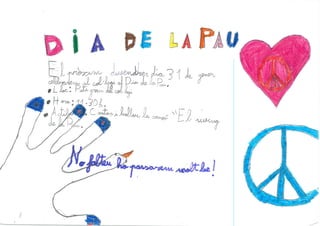 DIA DE LA PAU
El pròxim divendres dia 31 de gener
celebrarem al col·legi el Dia de la Pau.
• Lloc: Pati gran del col·legi
• Hora: 11:30 h.
• Activitat: Cantar i ballar la cançó "El
de la Pau.
No falteu ho passarem molt bé!